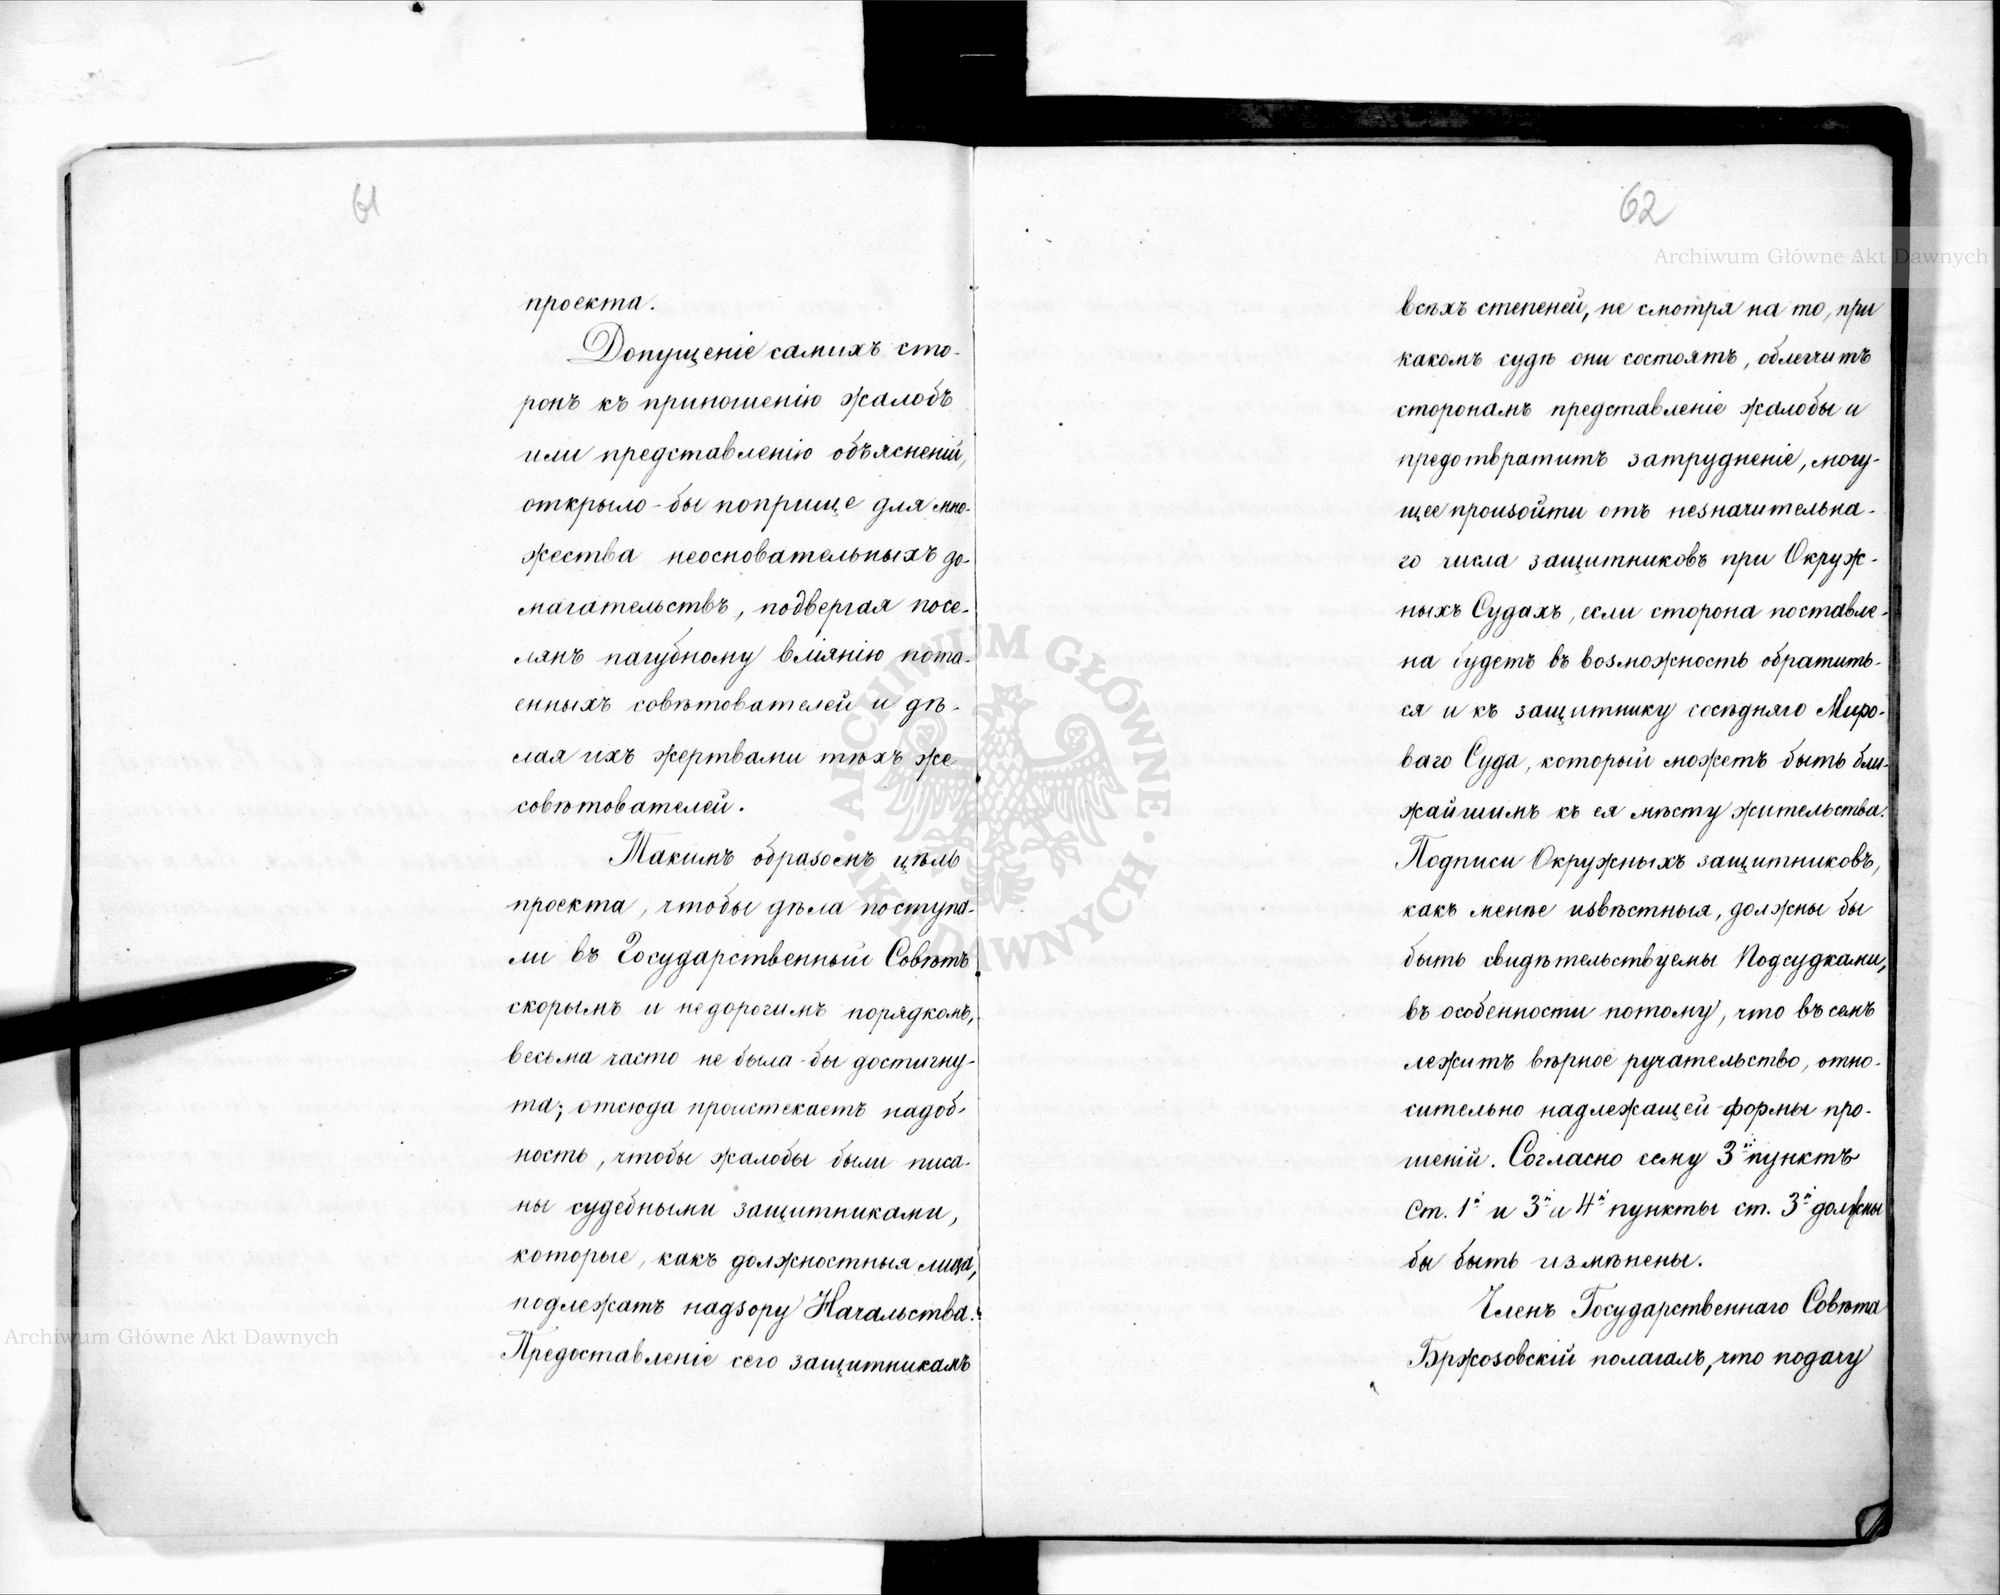 61
проекта.
Допущеніе самихъ сто-
ронъ къ приношенію жалобъ
или представленію объясненій,
открыло-бы поприще для мно-
жества неосновательныхъ до-
магательствъ, подвергая посе-
лянъ пагубному вліянію пота-
енныхъ совѣтователей и дѣ-
лая ихъ жертвами тѣхъ же
совѣтователей.
Такимъ образомъ цѣль
проекта, чтобы дѣла поступа-
ли въ Государственный Совѣтъ
скорымъ и недорогимъ порядкомъ,
весьма часто не была-бы достигну-
та; отсюда проистекаетъ надоб-
ность, чтобы жалобы были писа-
ны судебными защитниками,
которые, какъ должностныя лица,
подлежатъ надзору Начальства.
Предоставленіе сего защитникамъ
62
всѣхъ степеней, не смотря на то, при
какомъ судѣ они состоятъ, облегчитъ
сторонамъ представленіе жалобы и
предотвратитъ затрудненіе, могу-
щее произойти отъ незначительна-
го числа защитниковъ при Окруж-
ныхъ Судахъ, если сторона поставле-
на будетъ въ возможность обратить-
ся и къ защитнику сосѣдняго Миро-
ваго Суда, который можетъ быть бли-
жайшимъ къ ея мѣсту жительства.
Подписи Окружныхъ защитниковъ,
какъ менѣе извѣстныя, должны бы
быть свидѣтельствуемы Подсудками,
въ особенности потому, что въ семъ
лежитъ вѣрное ручательство, отно-
сительно надлежащей формы про-
шеній. Согласно сему 3й пунктъ
ст. 1й и 3й и 4й пункты ст. 3й должны
бы быть измѣнены.
Членъ Государственнаго Совѣта
Бржозовскій полагалъ, что подачу
Archiwum Główne Akt Dawnych
Archiwum Główne Akt Dawnych
ARCHIWUM GŁÓWNE AKT DAWNYCH